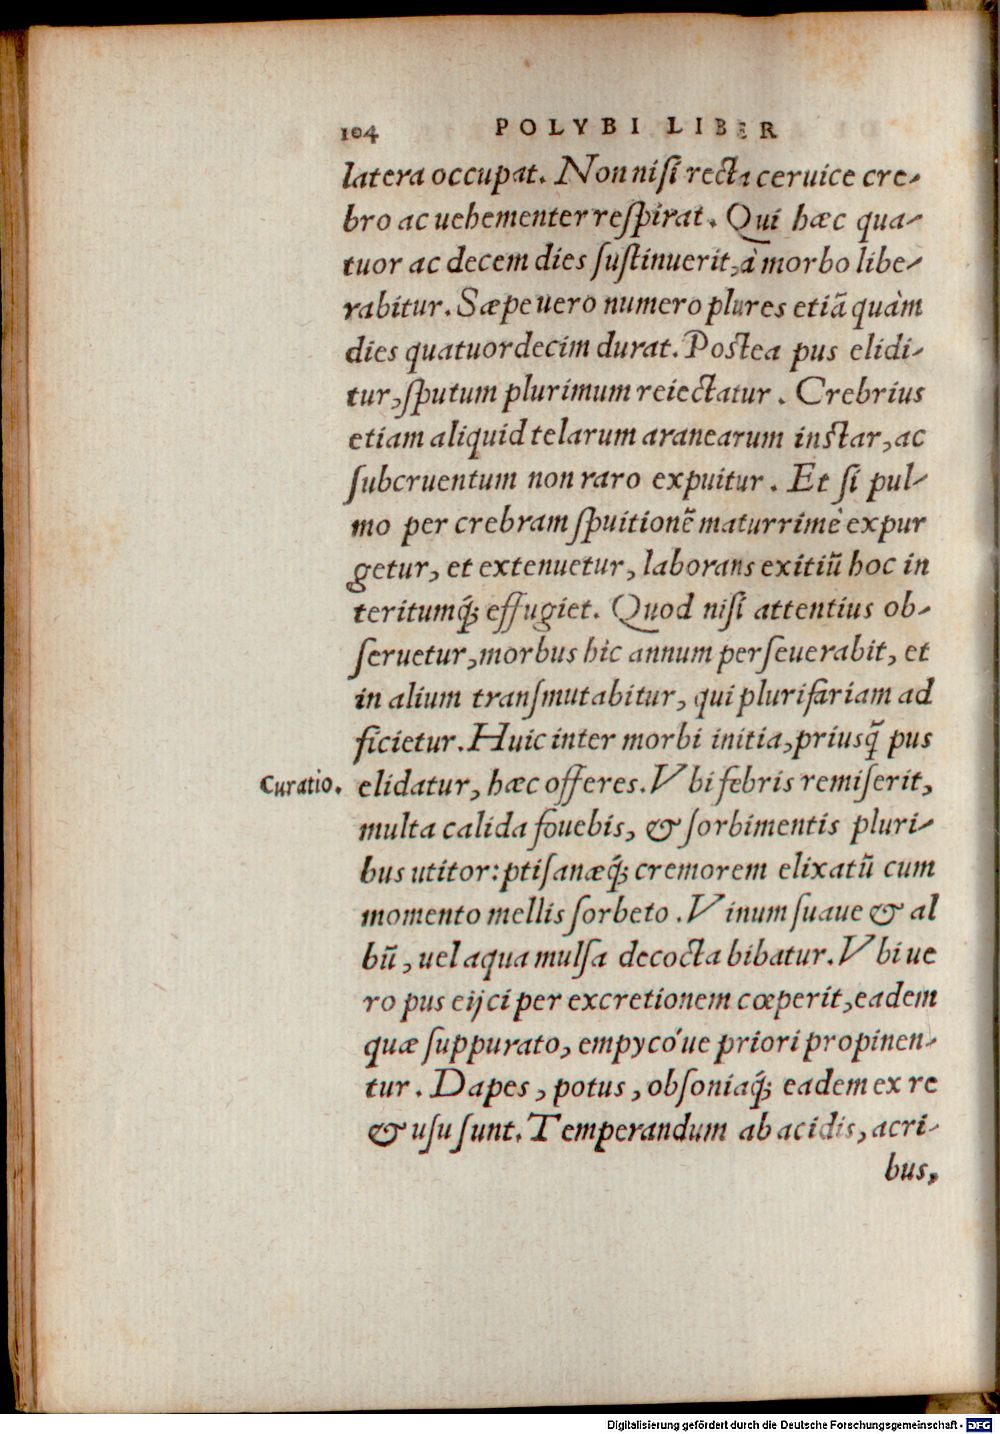 104 POLYBI LIBER
latera occupat. Non nisi recta ceruice cre-
bro ac uehementer respirat. Qui hæc qua-
tuor ac decem dies sustinuerit, à morbo libe-
rabitur. Sæpe uero numero plures etiã quàm
dies quatuordecim durat. Postea pus elidi-
tur, sputum plurimum reiectatur. Crebrius
etiam aliquid telarum aranearum instar, ac
subcruentum non raro expuitur. Et si pul-
mo per crebram spuitionẽ maturrimè expur
getur, et extenuetur, laborans exitiũ hoc in
teritumq́; effugiet. Quod nisi attentius ob-
seruetur, morbus hic annum perseuerabit, et
in alium transmutabitur, qui plurifariam ad
ficietur. Huic inter morbi initia, priusq̃ pus
Curatio. elidatur, hæc offeres. Vbi febris remiserit,
multa calida fouebis, & sorbimentis pluri-
bus utitor: ptisanæq́; cremorem elixatũ cum
momento mellis sorbeto. Vinum suaue & al
bũ, uel aqua mulsa decocta bibatur. Vbi ue
ro pus eijci per excretionem cœperit, eadem
quæ suppurato, empycóue priori propinen-
tur. Dapes, potus, obsoniaq́; eadem ex re
& usu sunt. Temperandum ab acidis, acri-
bus,
Digitalisierung gefördert durch die Deutsche Forschungsgemeinschaft - DFG